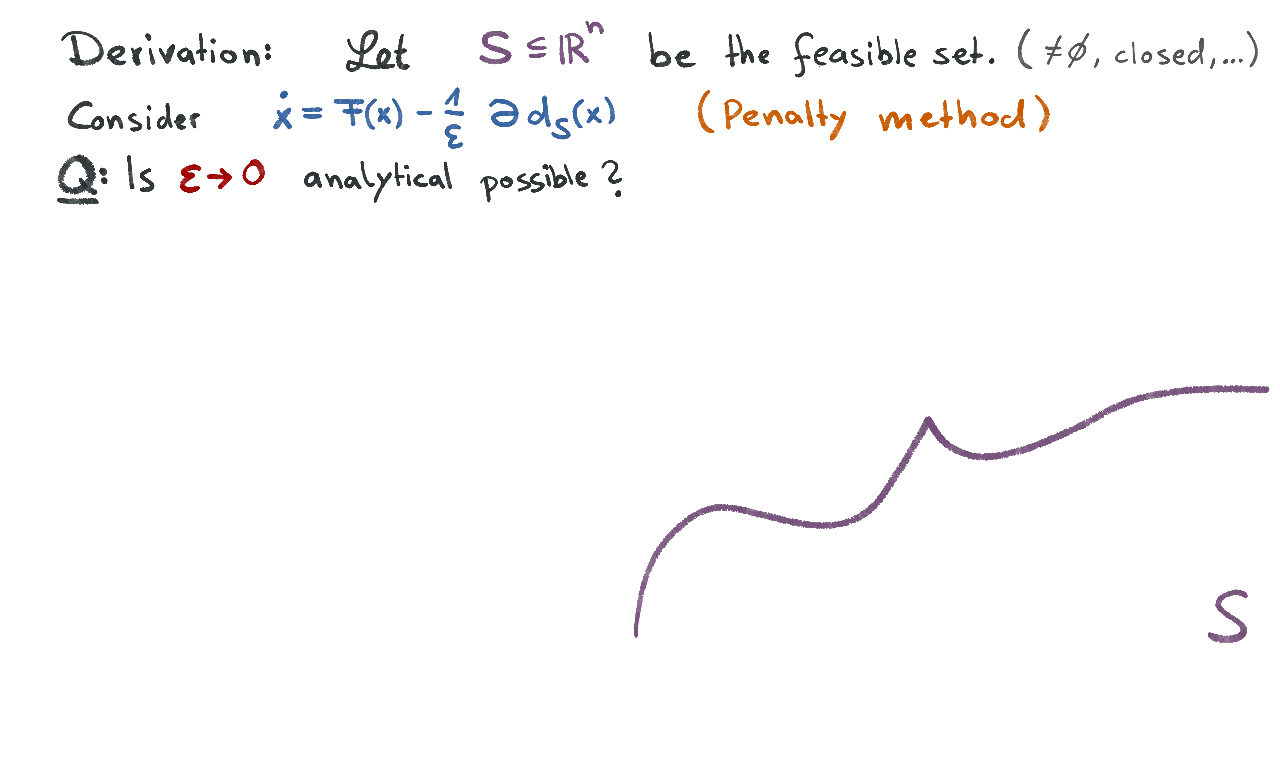 Derivation: Let S ⊆ ℝⁿ be the feasible set. (≠∅, closed,...)
Consider ẋ = F(x) - 1/ε ∂d_S(x) (Penalty method)
Q: Is ε→0 analytical possible?
S